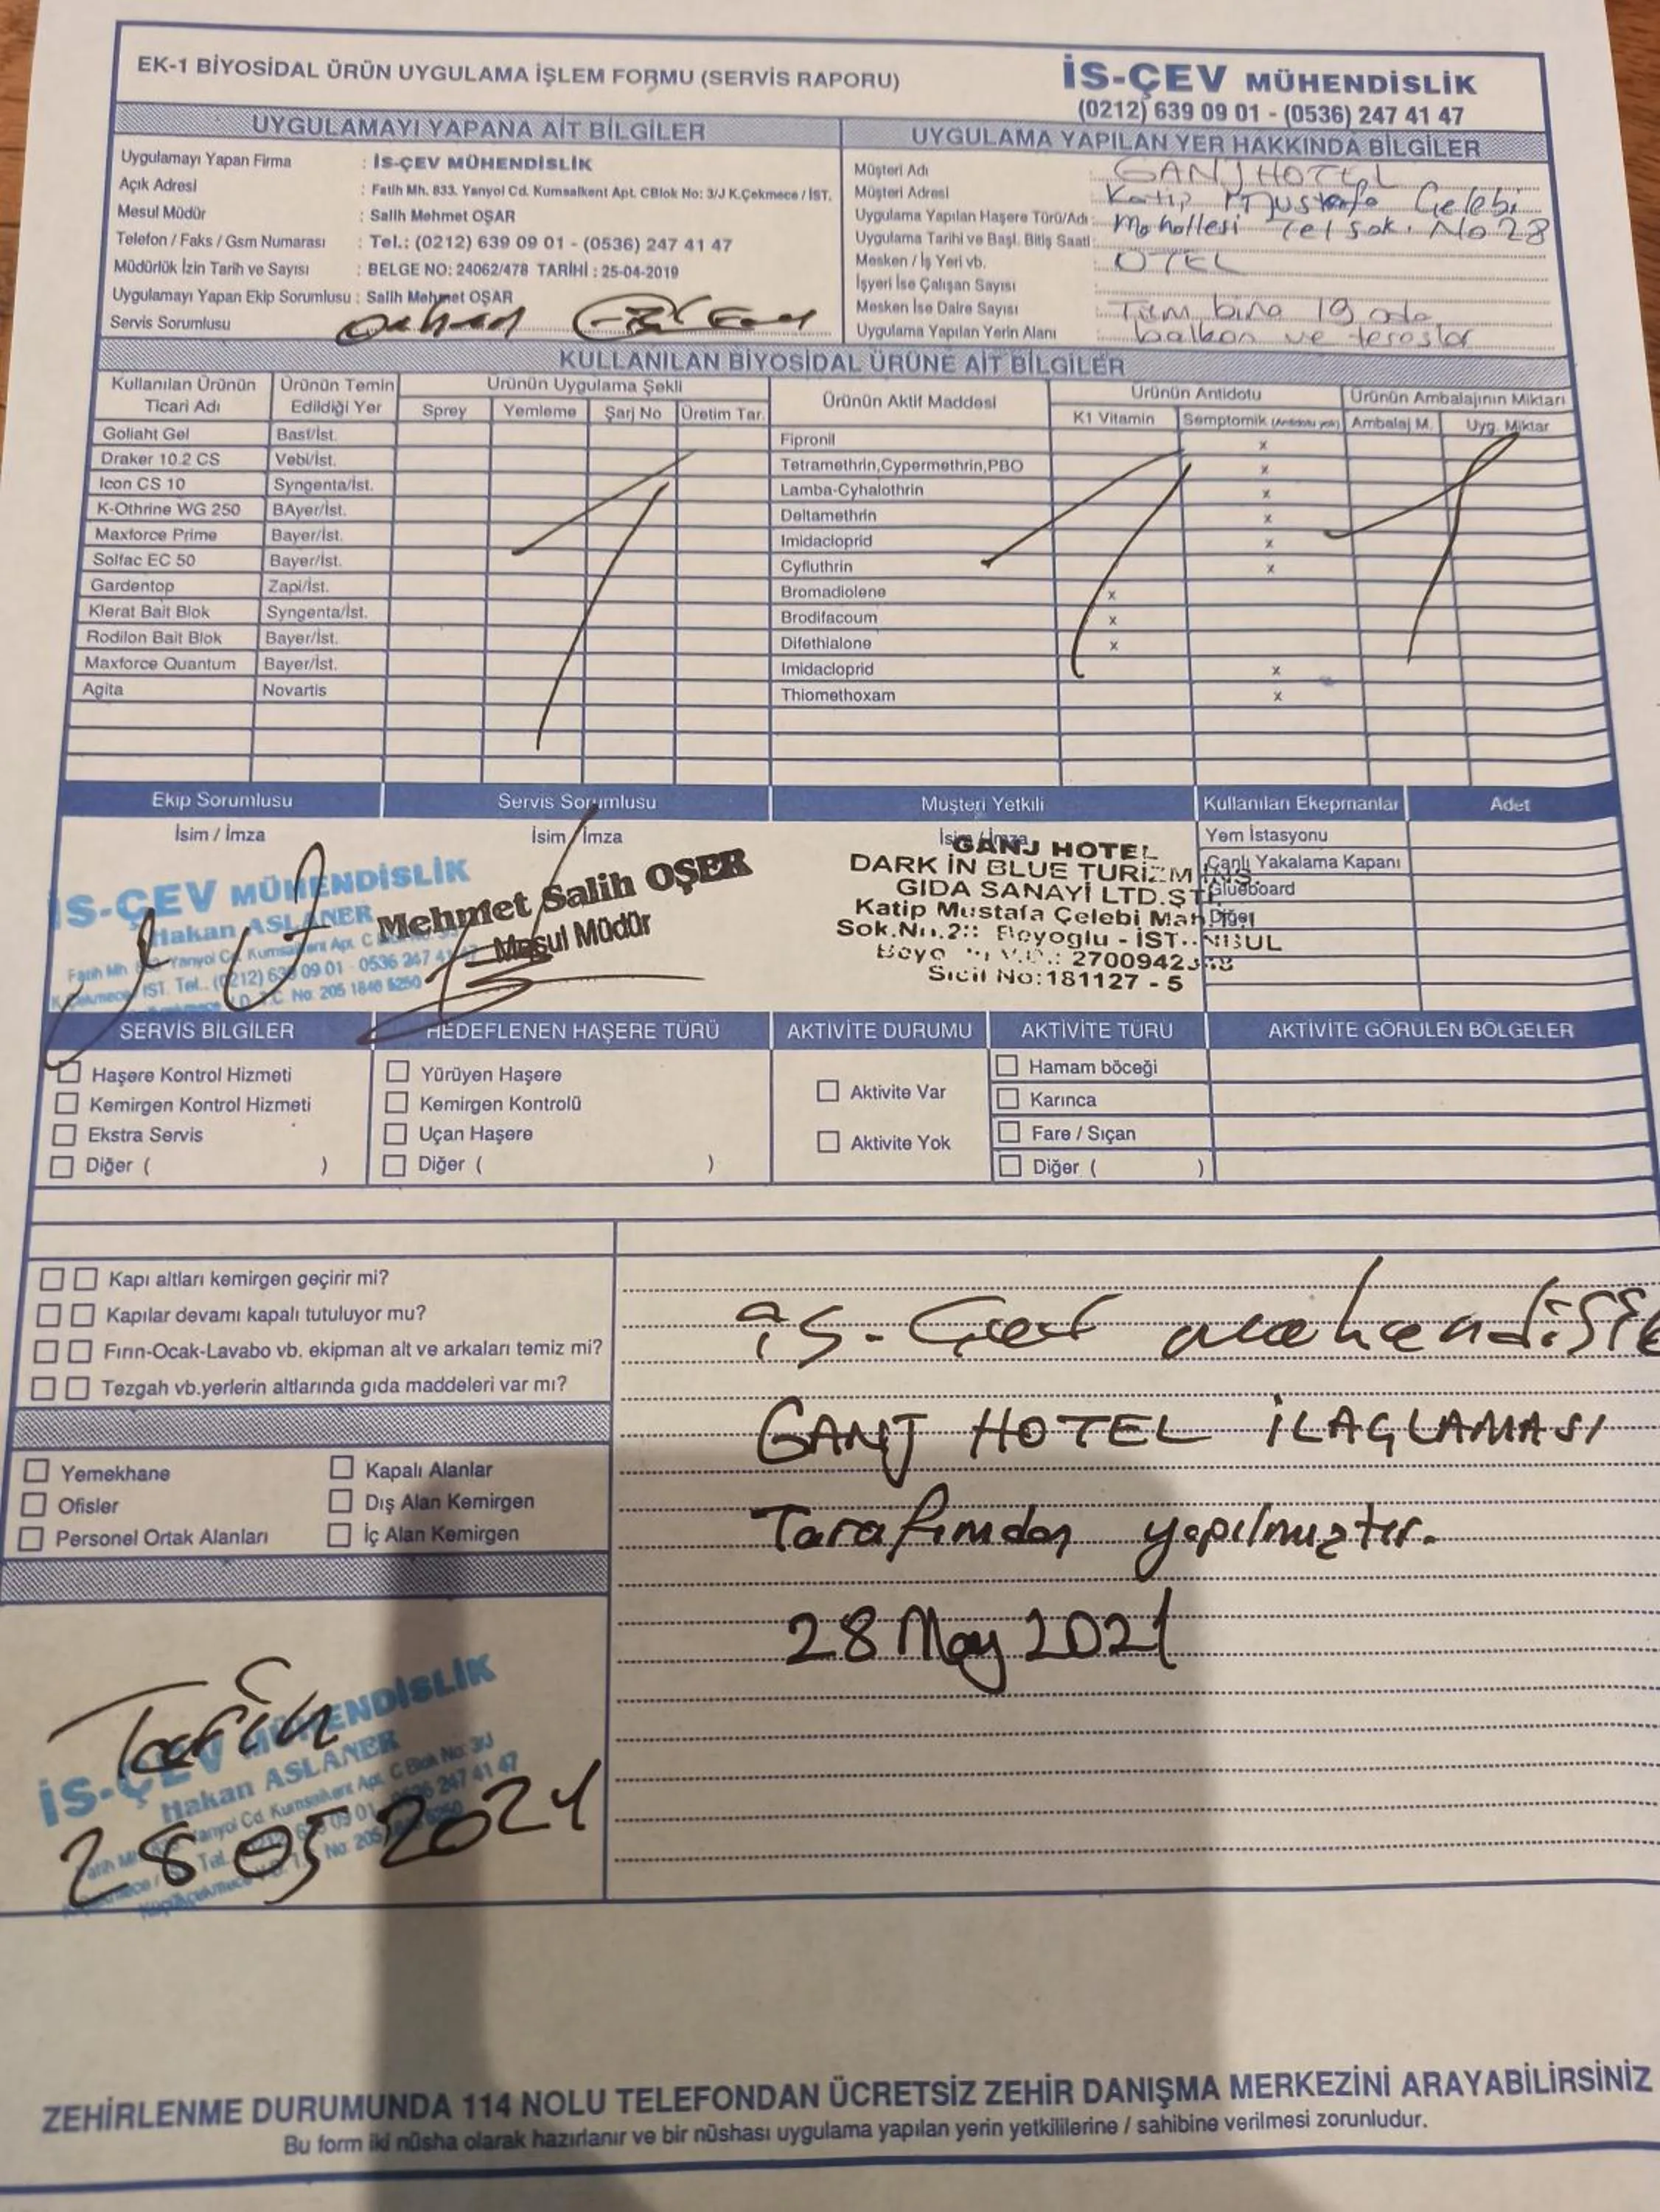 EK-1 BİYOSİDAL ÜRÜN UYGULAMA İŞLEM FORMU (SERVİS RAPORU)
İS-ÇEV MÜHENDİSLİK
(0212) 639 09 01 - (0536) 247 41 47
UYGULAMAYI YAPANA AİT BİLGİLER
Uygulamayı Yapan Firma : İS-ÇEV MÜHENDİSLİK
Açık Adresi : Fatih Mh. 833. Yanyol Cd. Kumsalkent Apt. CBlok No: 3/J K.Çekmece / İST.
Mesul Müdür : Salih Mehmet OŞAR
Telefon / Faks / Gsm Numarası : Tel.: (0212) 639 09 01 - (0536) 247 41 47
Müdürlük İzin Tarih ve Sayısı : BELGE NO: 24062/478 TARİHİ : 25-04-2019
Uygulamayı Yapan Ekip Sorumlusu : Salih Mehmet OŞAR
Servis Sorumlusu
UYGULAMA YAPILAN YER HAKKINDA BİLGİLER
Müşteri Adı : GANJ HOTEL
Müşteri Adresi : Katip Mustafa Çelebi
Uygulama Yapılan Haşere Türü/Adı : Mahallesi Tel sok. No 28
Uygulama Tarihi ve Başl. Bitiş Saati :
Mesken / İş Yeri vb. : OTEL
İşyeri İse Çalışan Sayısı
Mesken İse Daire Sayısı : Tüm bina 19 oda
Uygulama Yapılan Yerin Alanı : balkon ve teraslar
KULLANILAN BİYOSİDAL ÜRÜNE AİT BİLGİLER
Kullanılan Ürünün Ticari Adı Ürünün Temin Edildiği Yer Ürünün Uygulama Şekli Ürünün Aktif Maddesi Ürünün Antidotu Ürünün Ambalajının Miktarı
Sprey Yemleme Şarj No Üretim Tar. K1 Vitamin Semptomik (Antidotu yok) Ambalaj M. Uyg. Miktar
Goliaht Gel Basf/İst. Fipronil x
Draker 10.2 CS Vebi/İst. Tetramethrin,Cypermethrin,PBO x
Icon CS 10 Syngenta/İst. Lamba-Cyhalothrin x
K-Othrine WG 250 BAyer/İst. Deltamethrin x
Maxforce Prime Bayer/İst. Imidacloprid x
Solfac EC 50 Bayer/İst. Cyfluthrin x
Gardentop Zapi/İst. Bromadiolene x
Klerat Bait Blok Syngenta/İst. Brodifacoum x
Rodilon Bait Blok Bayer/İst. Difethialone x
Maxforce Quantum Bayer/İst. Imidacloprid x
Agita Novartis Thiomethoxam x
Ekip Sorumlusu Servis Sorumlusu Müşteri Yetkili Kullanılan Ekepmanlar Adet
İsim / İmza İsim / İmza İsim / İmza
Yem İstasyonu
Canlı Yakalama Kapanı
Glueboard
Diğer
İS-ÇEV MÜHENDİSLİK
Hakan ASLANER
Mehmet Salih OŞER
Mesul Müdür
GANJ HOTEL
DARK İN BLUE TURİZM
GIDA SANAYİ LTD.ŞTİ
Katip Mustafa Çelebi Mah
Beyoglu
Sicil No:181127 - 5
SERVİS BİLGİLER HEDEFLENEN HAŞERE TÜRÜ AKTİVİTE DURUMU AKTİVİTE TÜRÜ AKTİVİTE GÖRÜLEN BÖLGELER
Haşere Kontrol Hizmeti Yürüyen Haşere Aktivite Var Hamam böceği
Kemirgen Kontrol Hizmeti Kemirgen Kontrolü Karınca
Ekstra Servis Uçan Haşere Aktivite Yok Fare / Sıçan
Diğer ( ) Diğer ( ) Diğer ( )
Kapı altları kemirgen geçirir mi?
Kapılar devamı kapalı tutuluyor mu?
Fırın-Ocak-Lavabo vb. ekipman alt ve arkaları temiz mi?
Tezgah vb.yerlerin altlarında gıda maddeleri var mı?
Yemekhane Kapalı Alanlar
Ofisler Dış Alan Kemirgen
Personel Ortak Alanları İç Alan Kemirgen
GANJ HOTEL İLAÇLAMASI
Tarafımdan yapılmıştır.
28 May 2021
Tarih
28 05 2021
İS-ÇEV MÜHENDİSLİK
Hakan ASLANER
ZEHİRLENME DURUMUNDA 114 NOLU TELEFONDAN ÜCRETSİZ ZEHİR DANIŞMA MERKEZİNİ ARAYABİLİRSİNİZ
Bu form iki nüsha olarak hazırlanır ve bir nüshası uygulama yapılan yerin yetkililerine / sahibine verilmesi zorunludur.